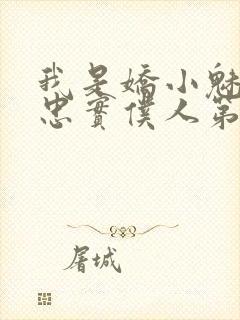 我是嬌小魅
忠實僕人第
屠城